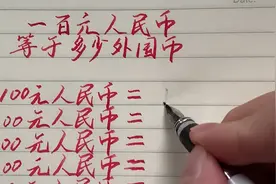 一百元人民币
等于多少外国币
100元人民币=
00元人民币=
00元人民币=
00元人民币=